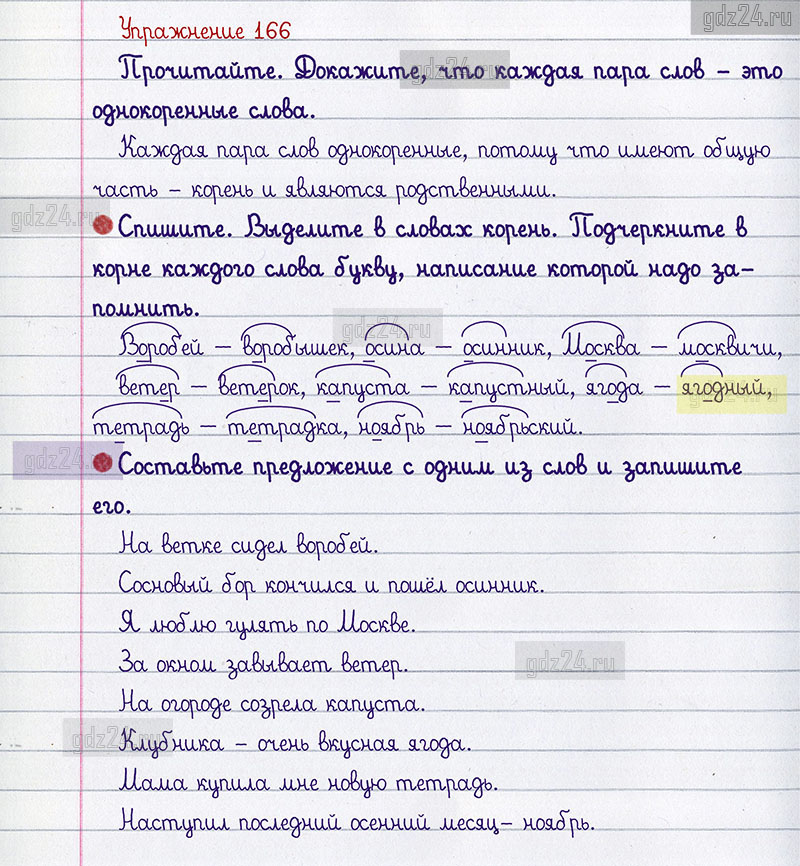 gdz24.ru
Упражнение 166
Прочитайте. Докажите, что каждая пара слов – это
gdz24.ru
однокоренные слова.
Каждая пара слов однокоренные, потому что имеют общую
часть – корень и являются родственными.
gdz24.ru
Спишите. Выделите в словах корень. Подчеркните в
корне каждого слова букву, написание которой надо за-
помнить.
gdz24.ru
Воробей – воробышек, осина – осинник, Москва – москвичи,
ветер – ветерок, капуста – капустный, ягода – ягодный,
gdz24.ru
тетрадь – тетрадка, ноябрь – ноябрьский.
gdz24.ru
Составьте предложение с одним из слов и запишите
его.
На ветке сидел воробей.
Сосновый бор кончился и пошёл осинник.
Я люблю гулять по Москве.
За окном завывает ветер.
gdz24.ru
На огороде созрела капуста.
gdz24.ru
Клубника – очень вкусная ягода.
Мама купила мне новую тетрадь.
Наступил последний осенний месяц– ноябрь.